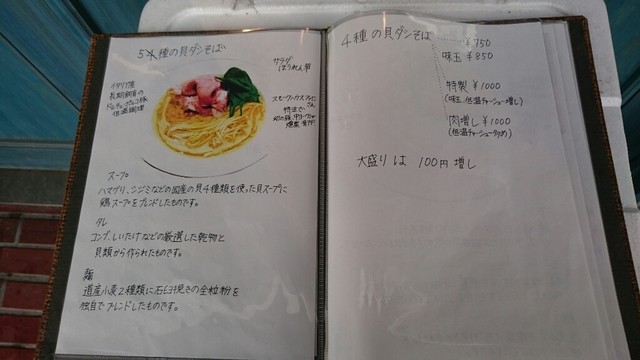 5種の貝ダシそば
イタリア産
長期飼育の
ドルチェポルコ豚
低温調理
サラダ
ほうれん草
スープ
ハマグリ、シジミなどの国産の貝4種類を使った貝スープに
鶏スープをブレンドしたものです。
タレ
コンブ、しいたけなどの厳選した乾物と
貝類から作られたものです。
麺
道産小麦2種類に石臼挽きの全粒粉を
独自でブレンドしたものです。
4種の貝ダシそば
¥750
味玉 ¥850
特製 ¥1000
(味玉、低温チャーシュー増し)
肉増し ¥1000
(低温チャーシュー多め)
大盛りは 100円増し